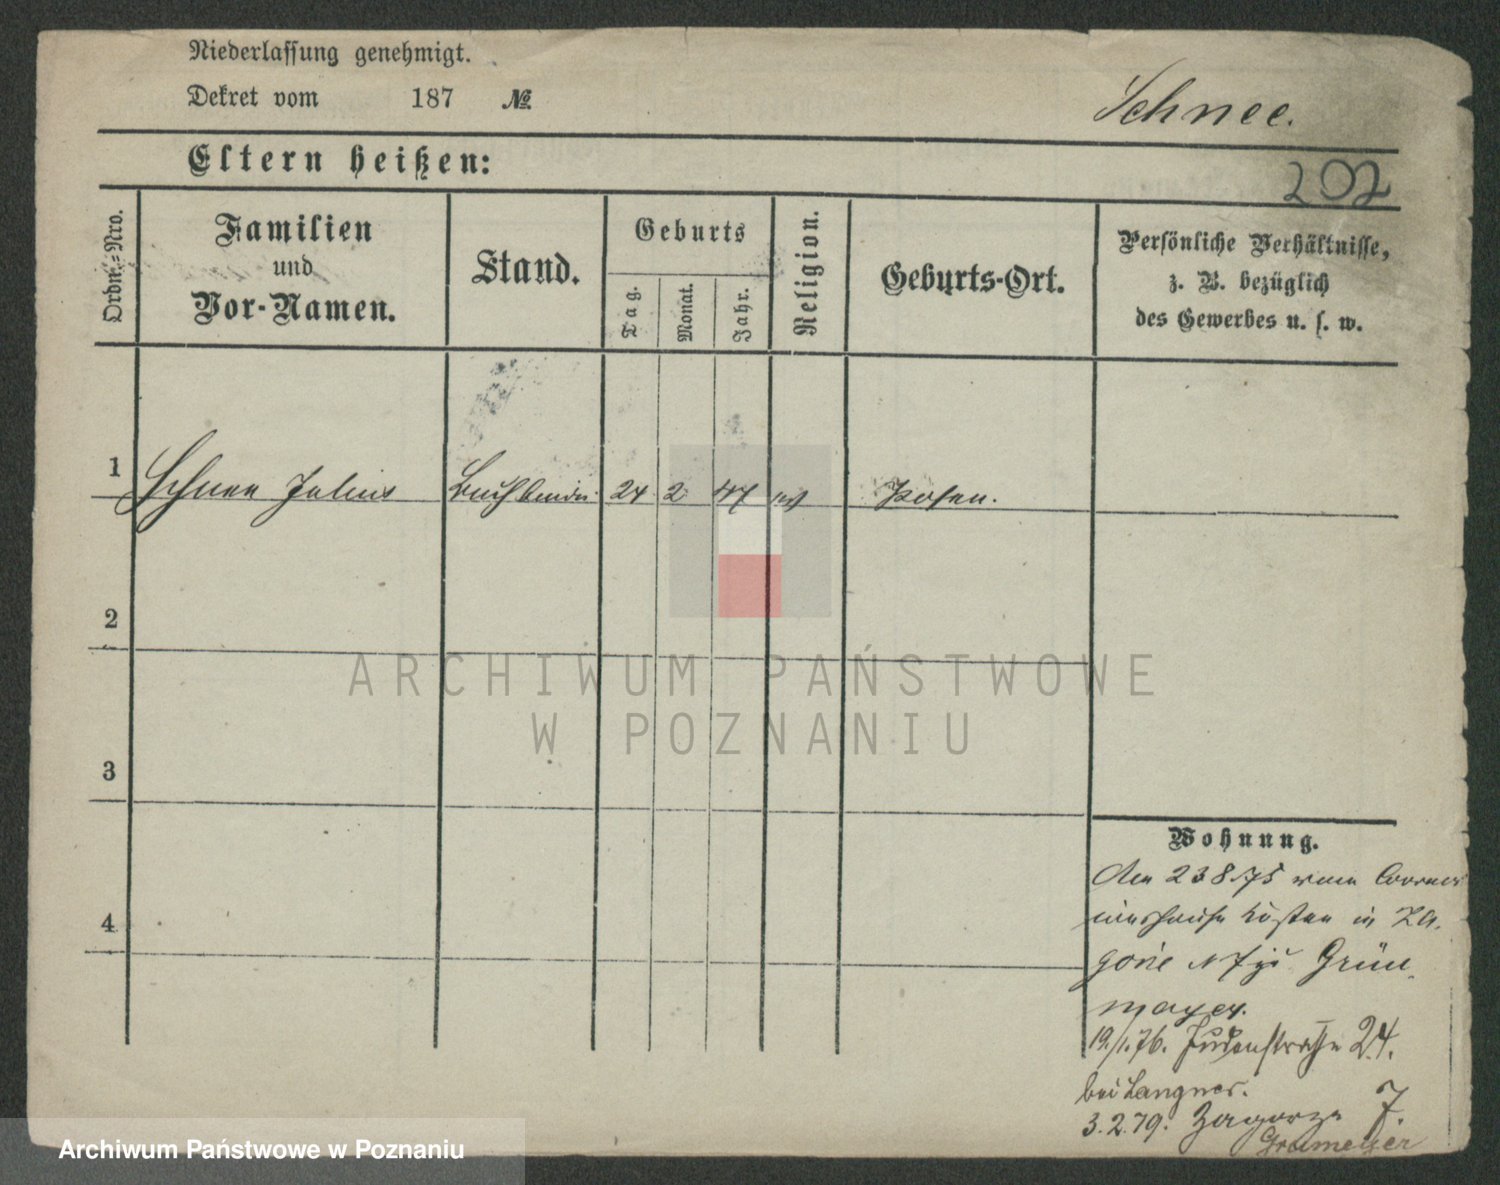 Niederlassung genehmigt.
Dekret vom 187 №.
Schnee.
Eltern heißen:
202
Ordn.-Nro.
Familien
und
Vor-Namen.
Stand.
Geburts
Tag.
Monat.
Jahr.
Religion.
Geburts-Ort.
Persönliche Verhältnisse,
z. B. bezüglich
des Gewerbes u. s. w.
1 Schnee Julius Buchbinder 24 2 47 Posen.
2
ARCHIWUM PAŃSTWOWE
W POZNANIU
3
Wohnung.
Den 23 8 75 vom
in Za
gorie N 7 Grün
mayer.
4
19./1.76. Judenstraße 24.
bei Langner.
3.2.79. Zagorze 7.
Grümeyer
Archiwum Państwowe w Poznaniu